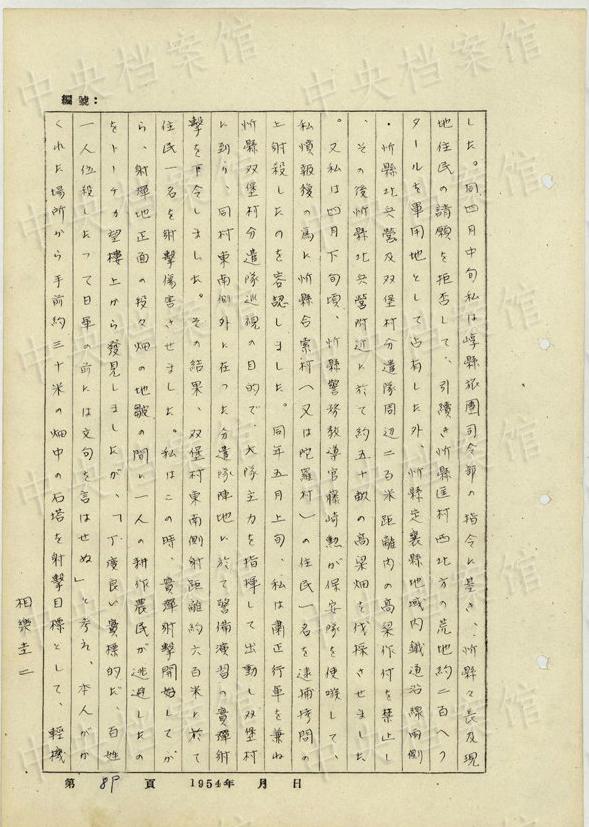 編號：
した。同四月中旬私は崞縣旅團司令部の指令に基き、忻縣々長及現
地住民の請願を拒否して、引續き忻縣匡村西北方の荒地約二百ヘク
タールを軍用地として占有した外、忻縣定襄縣地域内鐵道沿線両側
・忻縣北兵營及双堡村分遣隊周辺二百米距離内の高梁作付を禁止し
、その後忻縣北兵營附近に於て約五十畝の高梁畑を伐採させました
。又私は四月下旬頃、忻縣警務教導官藤崎勲が保安隊を使嗾して、
私憤報復の為に忻縣合索村（又は陀羅村）の住民一名を逮捕拷問の
上射殺したのを容認しました。同年五月上旬、私は粛正行軍を兼ね
忻縣双堡村分遣隊巡視の目的で、大隊主力を指揮して出動し双堡村
に到り、同村東南側外に在つた分遣隊陣地に於て警備演習の實彈射
撃を下令しました。その結果、双堡村東南側射距離約六百米に於て
住民一名を射撃傷害させました。私はこの時、實彈射撃開始してか
ら、射彈地正面の段々畑の地皺の間に一人の耕作農民が逃避したの
をトーチカ望樓上から發見しましたが、「丁度良い實標的だ、百姓
一人位殺したつて日軍の前には文句を言はせぬ」と考え、本人がか
くれた場所から手前約三十米の畑中の石塔を射擊目標として、輕機
相樂圭二
第 89 頁 1954年 月 日
中央档案馆